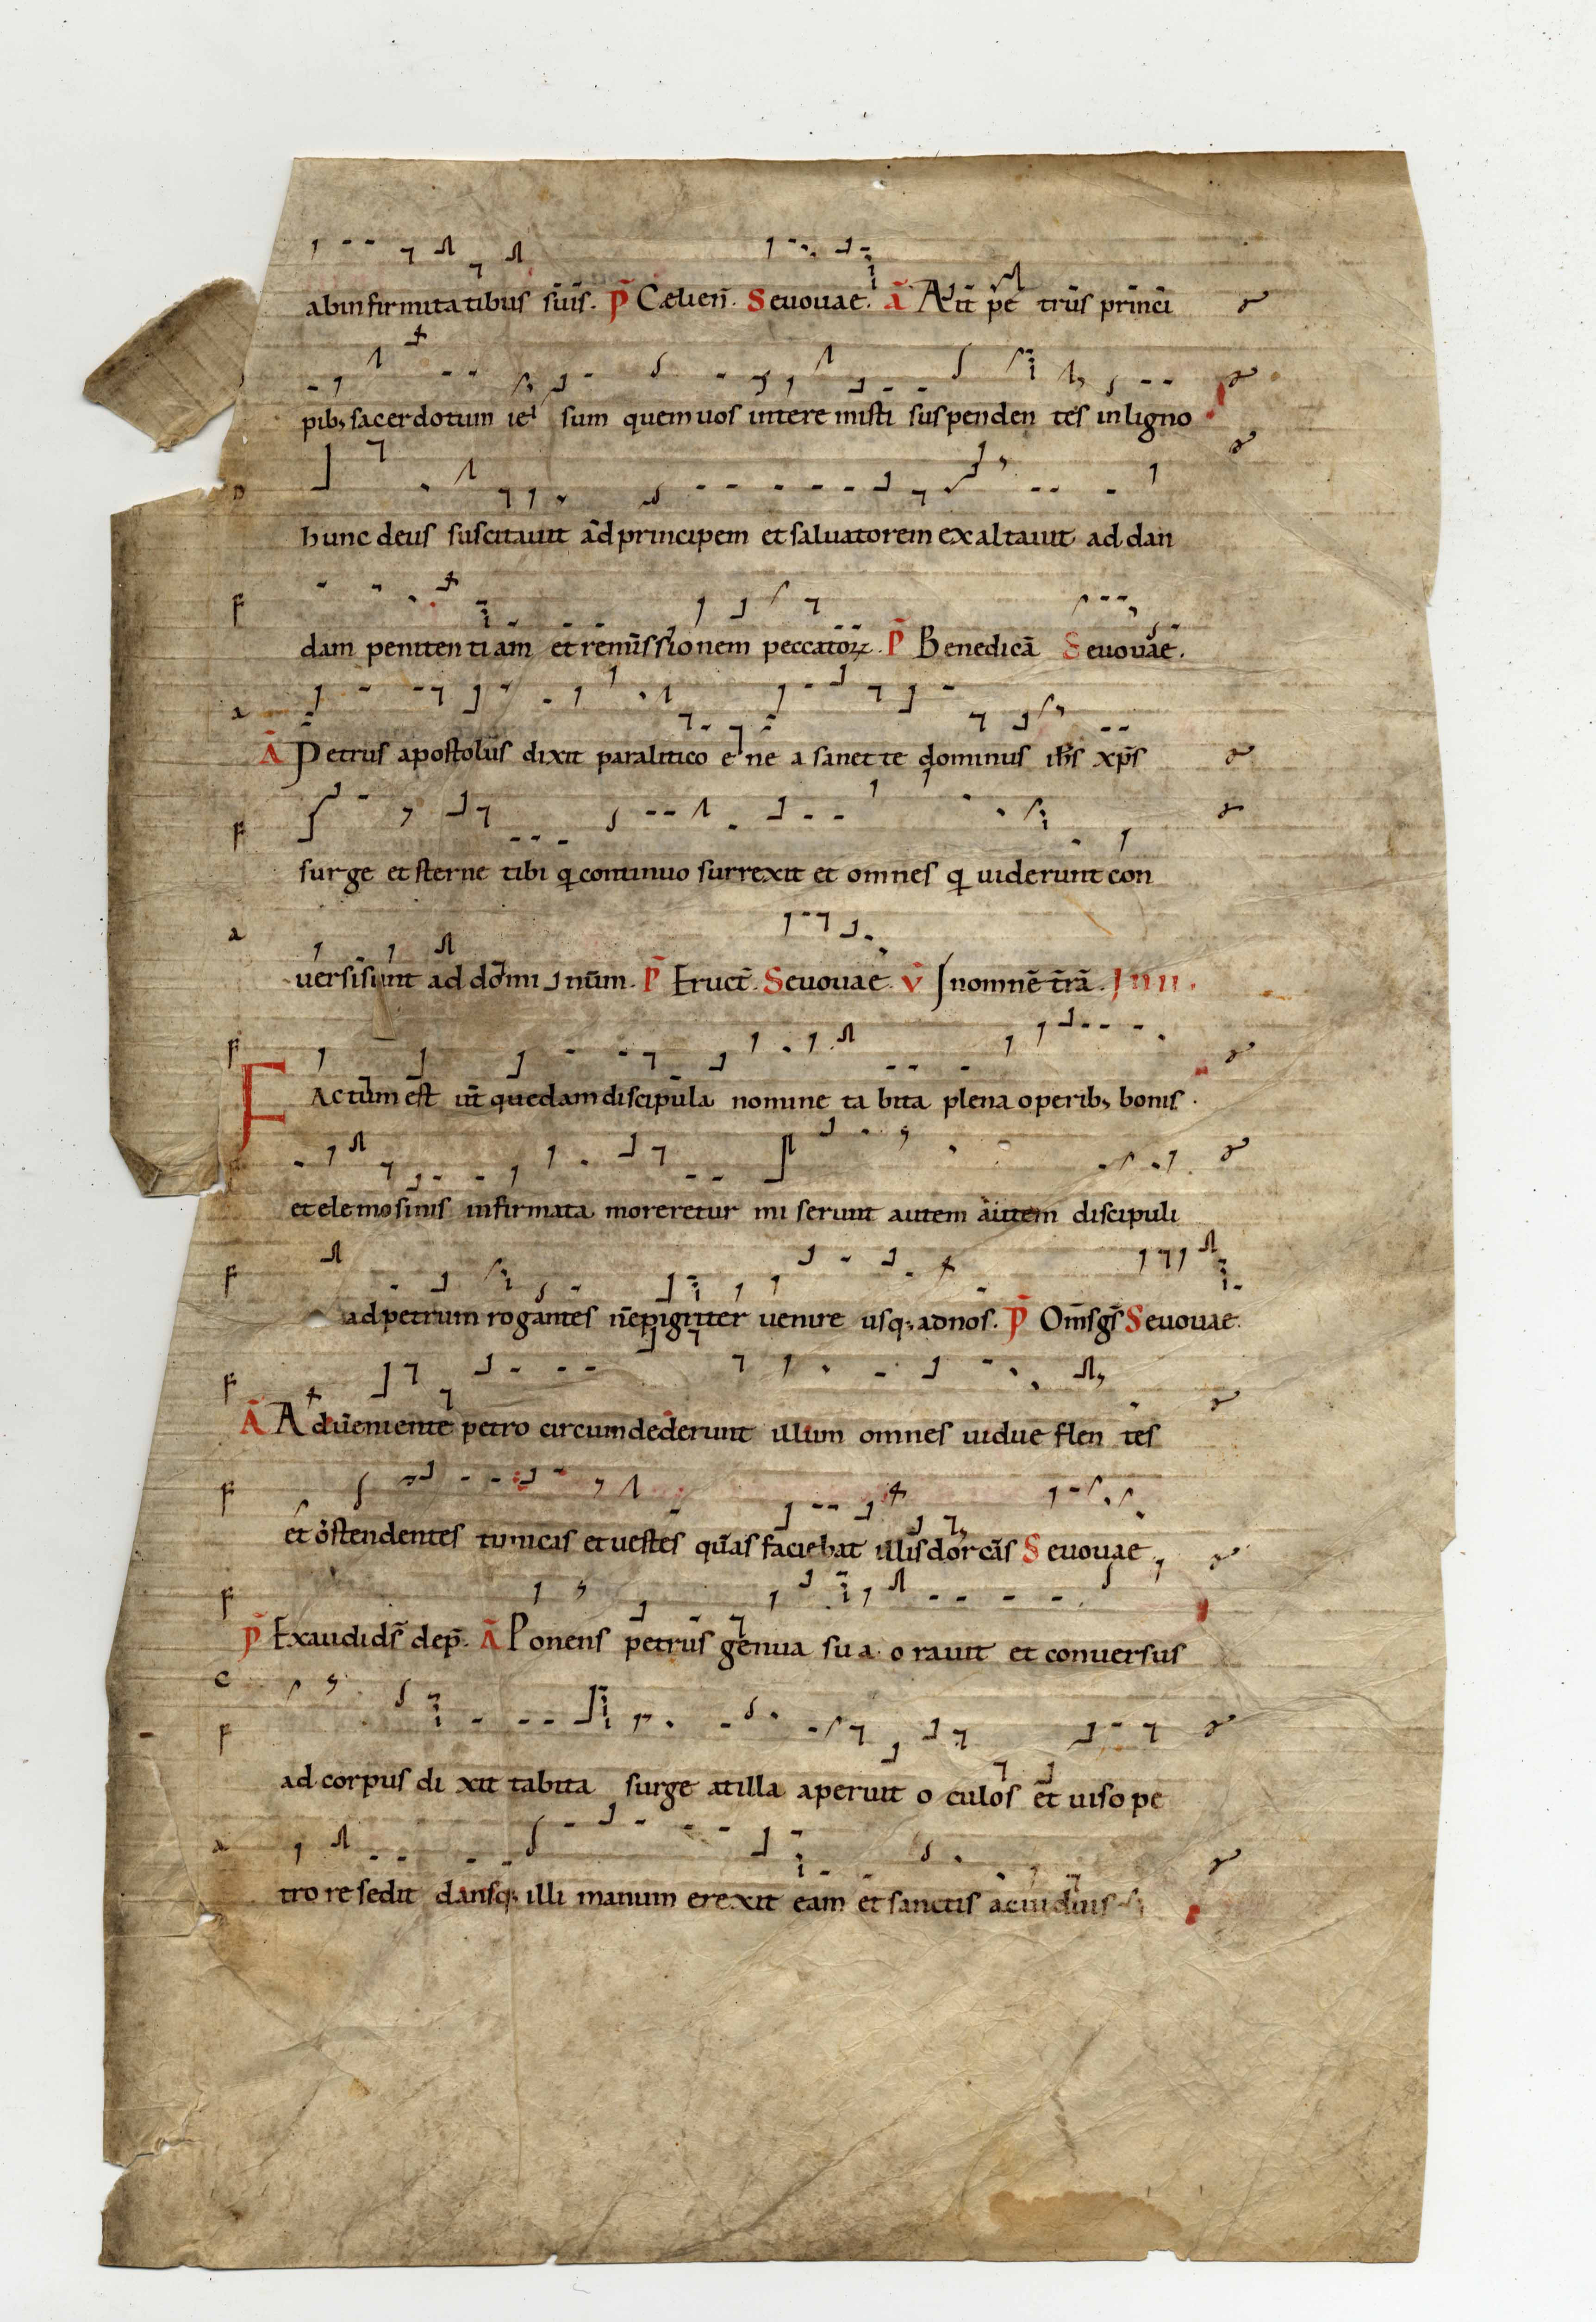 abinfirmitatibus suis. P̄ Cæli eñ. Seuouae. ā Ait pe trus princi
pib; sacerdotum ie sum quem uos interemisti suspenden tes in ligno
hunc deus suscitauit ad principem et saluatorem exaltauit ad dan
dam penitentiam et remissionem peccatoꝝ. P̄ Benedicā Seuouae.
Ā Petrus apostolus dixit paralitico e ne a sanet te dominus ih̄s xp̄s
surge et sterne tibi q continuo surrexit et omnes q uiderunt con
uersi sunt ad domi num. P̄ Eruct̄. Seuouae. v̄ Inomnē t̄rā. I N II.
Factum est ut quedam discipula nomine ta bita plena operib; bonis.
et elemosinis infirmata moreretur mi serunt autem autem discipuli
ad petrum rogantes ne pigriter uenire usq; ad nos. P̄ Om̄s gs̄ Seuouae.
Ā Adueniente petro circumdederunt illum omnes uidue flen tes
et ostendentes tunicas et uestes quas faciebat illis dorcas Seuouae
P̄ Exaudi ds̄ dep̄. Ā Ponens petrus genua su a orauit et conuersus
ad corpus di xit tabita surge at illa aperuit o culos et uiso pe
tro re sedit dansq; illi manum erexit eam et sanctis ac uiduis